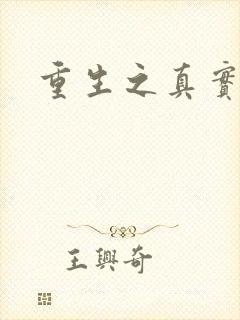 重生之真實
王興奇